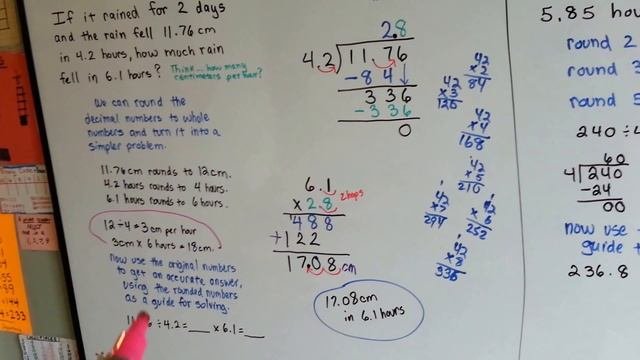 If it rained for 2 days
and the rain fell 11.76 cm
in 4.2 hours, how much rain
fell in 6.1 hours? Think... how many
centimeters per hour?
We can round the
decimal numbers to whole
numbers and turn it into a
simpler problem.
11.76 cm rounds to 12 cm.
4.2 hours rounds to 4 hours.
6.1 hours rounds to 6 hours.
12 ÷ 4 = 3 cm per hour
3 cm x 6 hours = 18 cm.
Now use the original numbers
to get an accurate answer,
using the rounded numbers
as a guide for solving.
÷ 4.2 = ___ x 6.1 = ___
2.8
4.2 11.76
-84
336
-336
0
6.1
x 2.8 2 hops
488
+122
17.08 cm
17.08 cm
in 6.1 hours
42
x 2
84
42
x 3
126
42
x 4
168
42
x 5
210
42
x 6
252
42
294
42
x 8
336
5.85 hou
round 2
round 3
round 5
240 ÷ 4
60
4 240
-24
00
now use
guide
236.8